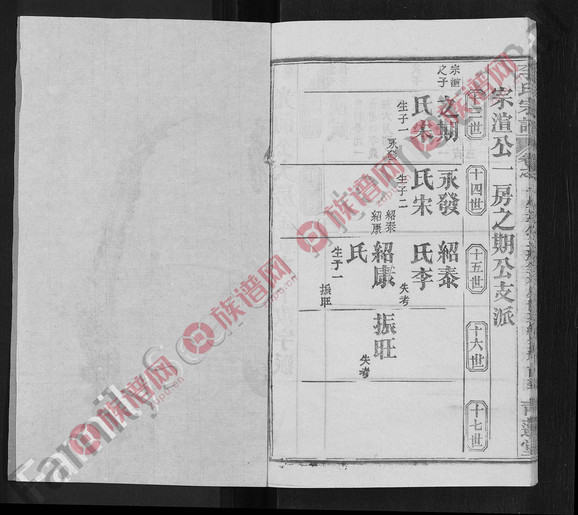 宗渲公一房之期公支派
十三世
十四世
十五世
十六世
十七世
宗渲之子
之期
氏宋
生子一
永發
永發
氏宋
生子二
紹泰
紹康
紹泰
氏李
失考
紹康
氏
生子一
振旺
振旺
失考
青蓮堂
族谱网
族谱网
族谱网
族谱网